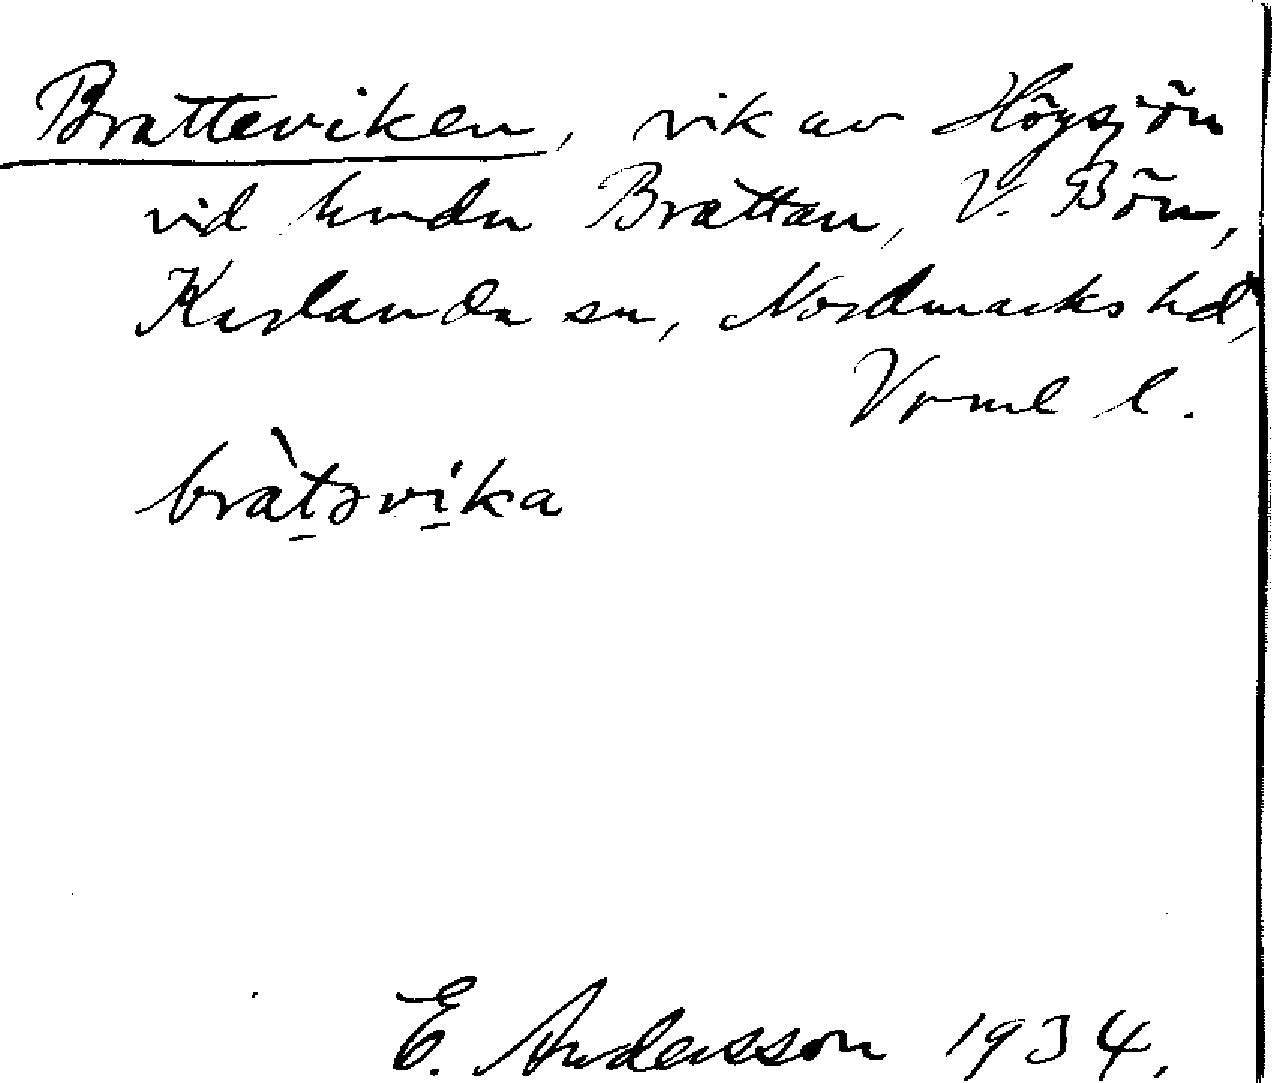 Bratteviken, vik av Högsjön
vid lindn Brattan, V. Bön,
Karlanda sn, Nordmarks hd,
Vrml l.
bràt̠əvi̠ka
E. Andersson 1934.